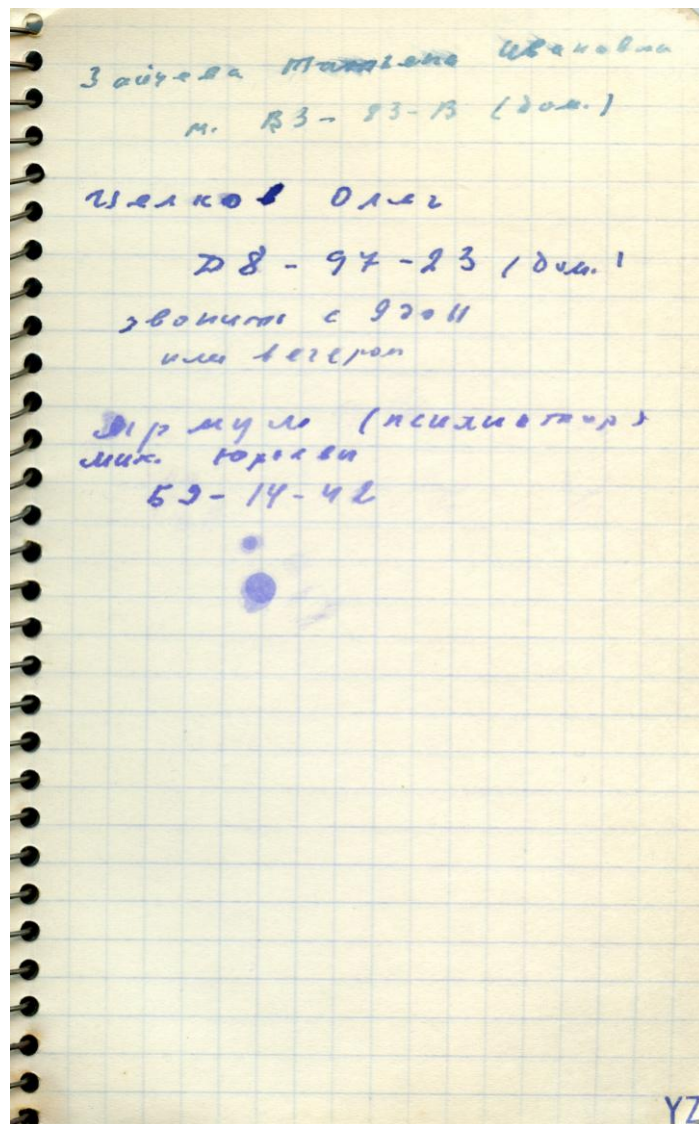 Зайцева Татьяна Ивановна
т. В3-83-13 (дом.)
Целков Олег
Д8-97-23 (дом.)
звонить с 9 до 11
или вечером
(психиатр)
мик. Юрьеви
Б9-14-42
YZ